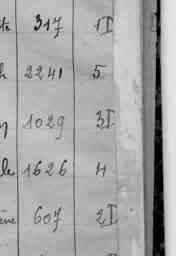 317 1I
2241 5
1029 3I
le 1626 4
ène 607 2I